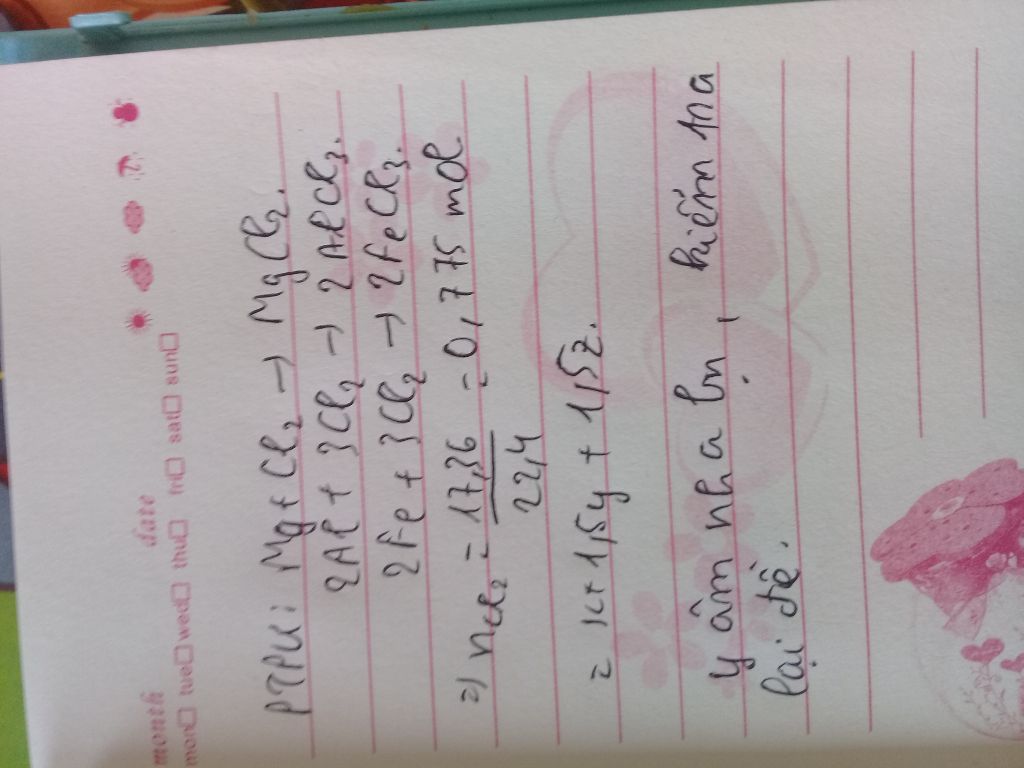 month date
mon tue wed thu fri sat sun
PTPU: Mg + Cl₂ → MgCl₂.
2Al + 3Cl₂ → 2AlCl₃.
2Fe + 3Cl₂ → 2FeCl₃.
=) nCl₂ = 17,36 / 22,4 = 0,775 mol
= x + 1,5y + 1,5z.
y âm nha bn, kiểm tra
lại đề.